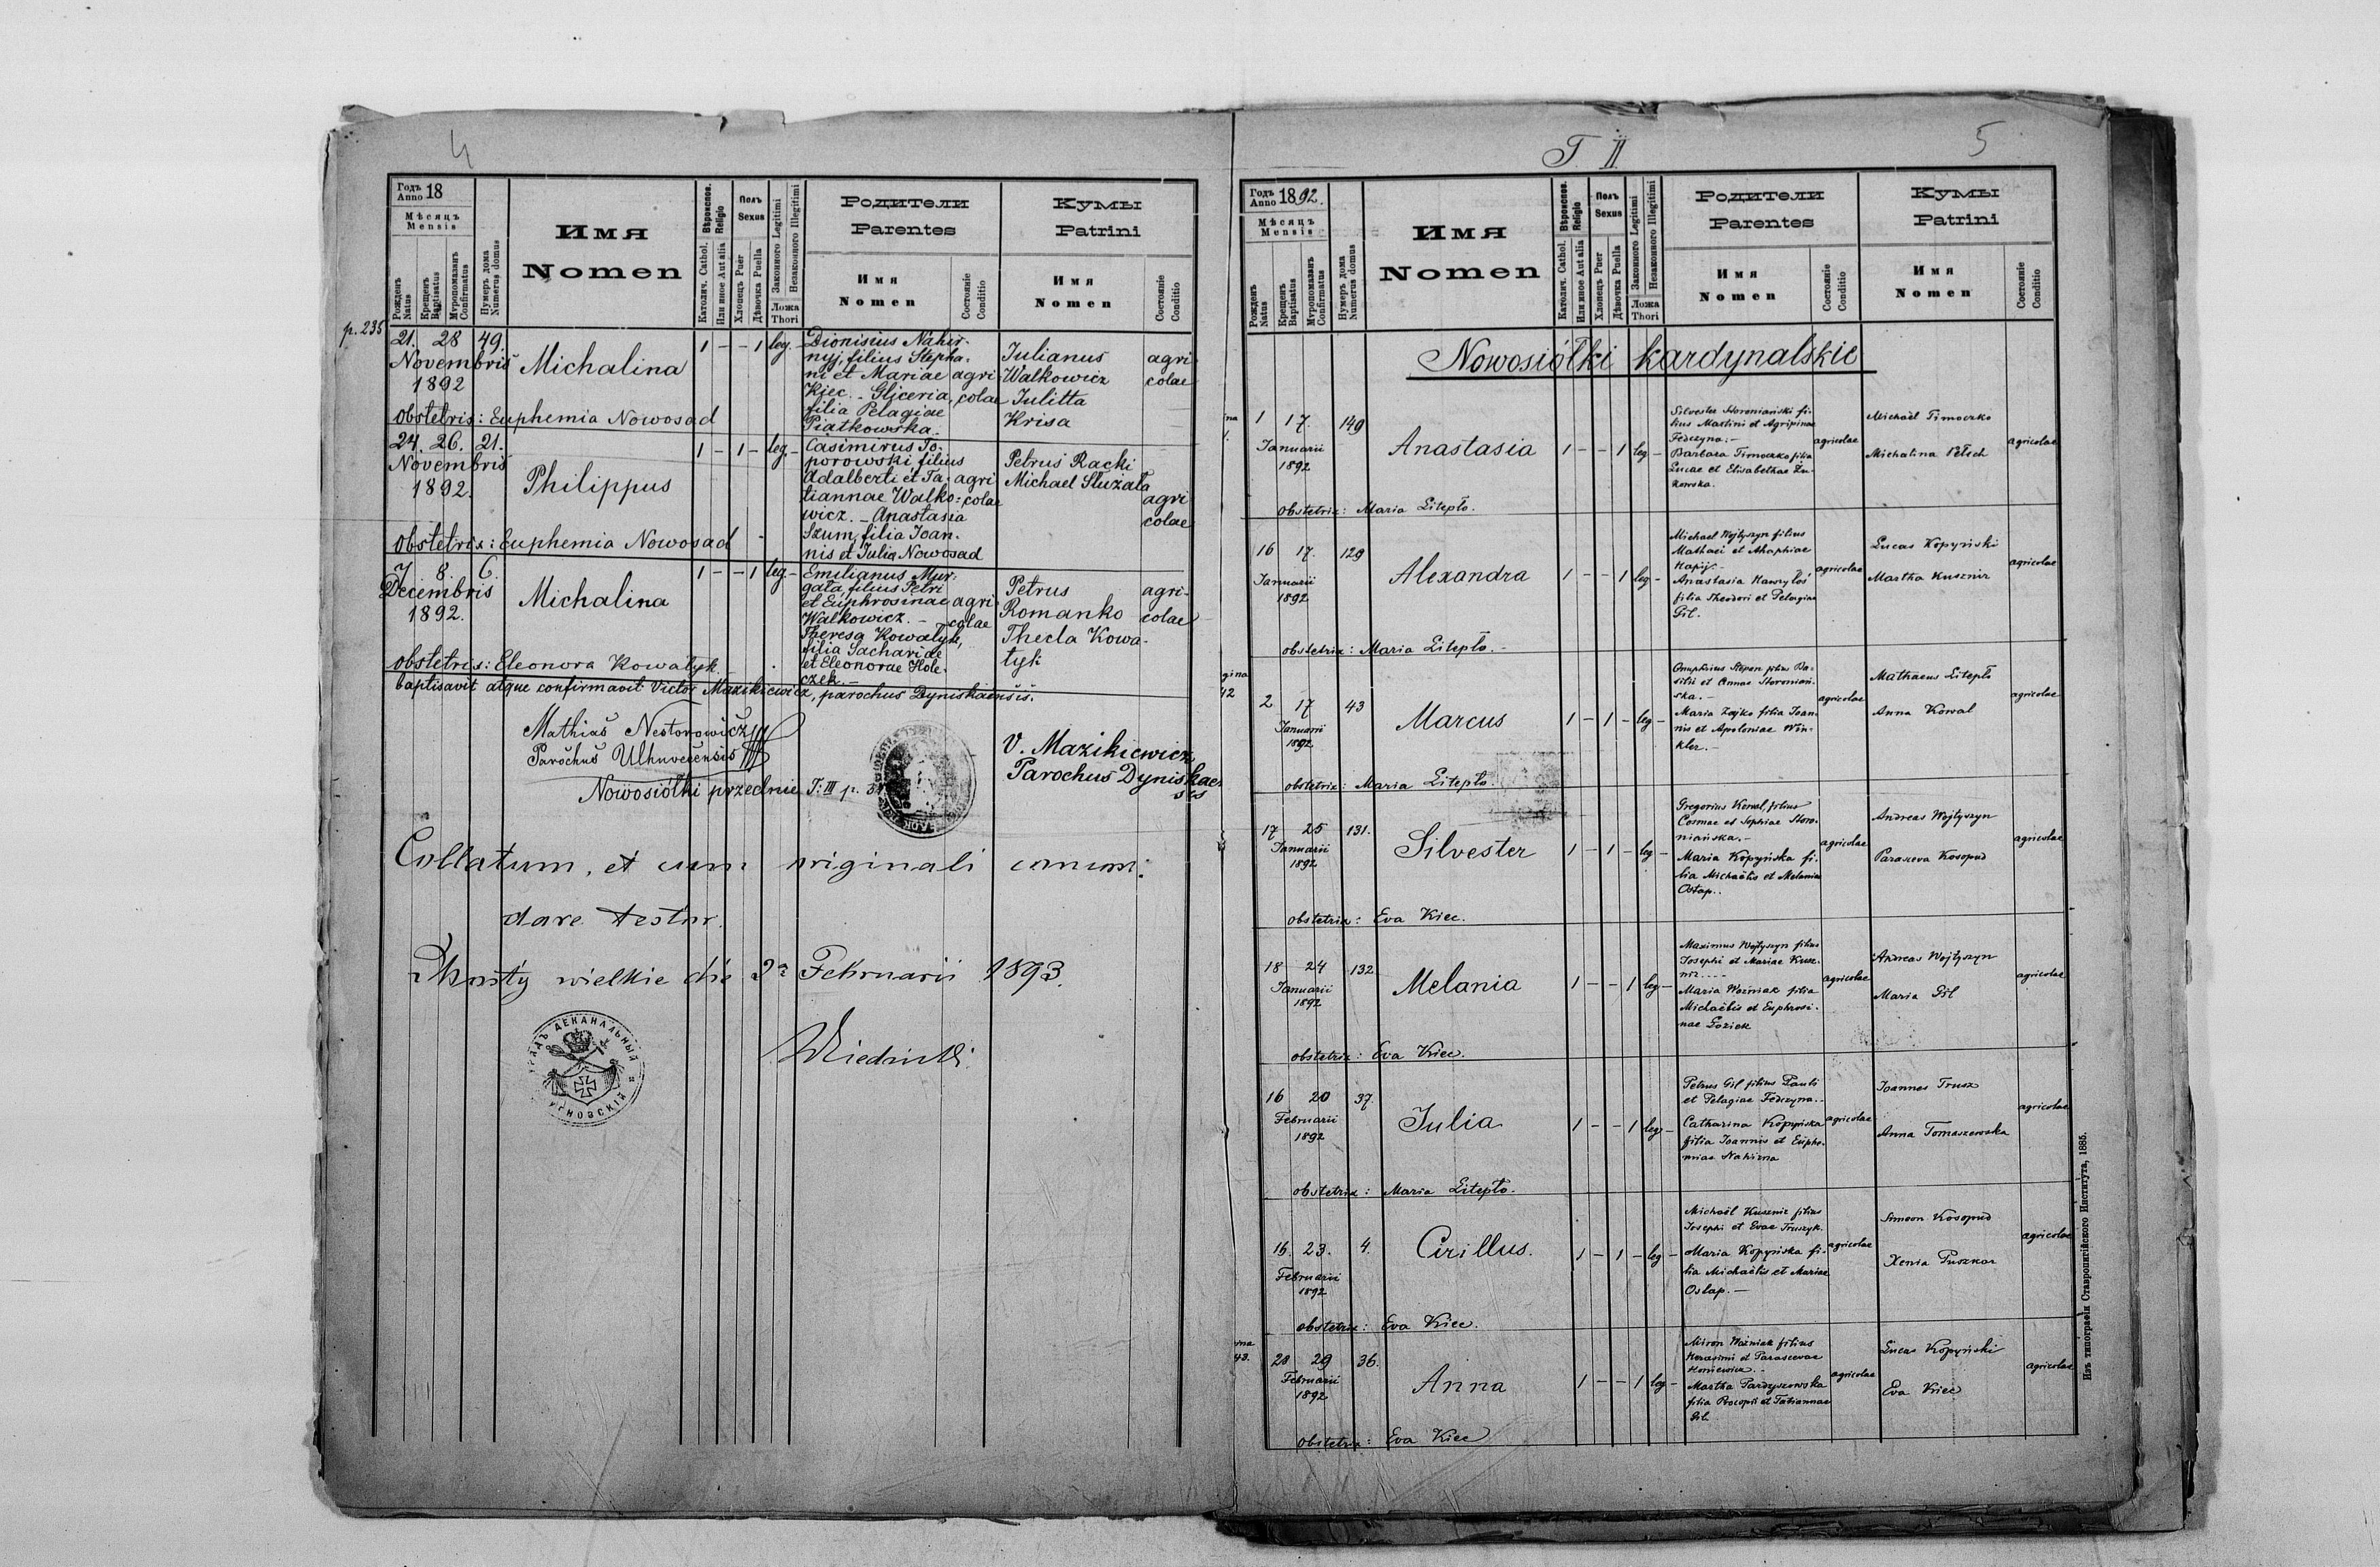 4
Годъ
Anno 18
Мѣсяцъ
Mensis
Рожденъ
Natus
Крещенъ
Baptisatus
Мѵропомазанъ
Confirmatus
Нумеръ дома
Numerus domus
Имя
Nomen
Вѣроиспов.
Religio
Католич. Cathol.
Или иное Aut alia
Полъ
Sexus
Хлопецъ Puer
Дѣвочка Puella
Законного Legitimi
Незаконного Illegitimi
Ложа
Thori
Родители
Parentes
Имя
Nomen
Состояніе
Conditio
Кумы
Patrini
Имя
Nomen
Состояніе
Conditio
p. 235
21. 28 49.
Novembris
1892
Michalina
1 – – 1 leg.
Dionisius Nahir-
nyj, filius Stepha-
ni et Mariae
Kiec. – Gliceria,
filia Pelagiae
Piatkowska.
agri
colae
Iulianus
Walkowicz
Iulitta
Krisa
agri
colae
obstetris: Euphemia Nowosad
24. 26. 21.
Novembris
1892.
Philippus
1 – 1 – leg.
Casimirus To-
porowski filius
Adalberti et Ta-
tiannae Walko-
wicz. – Anastasia
Szum, filia Joan-
nis et Julia Nowosad
agri
colae
Petrus Racki
Michael Służała
agri
colae
obstetrix: Euphemia Nowosad
7. 8. 6.
Decembris
1892.
Michalina
1 – – 1 leg. –
Emilianus Mur-
gała, filius Petri
et Euphrosinae
Walkowicz. –
Theresa Kowałyk,
filia Sachariae
et Eleonorae Hole-
czek. –
agri
colae
Petrus
Romanko
Thecla Kowa-
łyk
agri-
colae
obstetris: Eleonora Kowałyk
baptisavit atque confirmavit Victor Mazikiewicz, parochus Dyniskaensis.
Mathias Nestorowicz
Parochus Ulhuvecensis
V. Mazikiewicz
Parochus Dyniskaen
sis
Nowosiółki przednie T: III p. 3
Collatum, et cum originali concor:
dare testor.
wielkie die 2a Februarii 1893.
ДЕКАНАЛЬНЫЙ
5
T. II
Годъ
Anno 1892.
Мѣсяцъ
Mensis
Рожденъ
Natus
Крещенъ
Baptisatus
Мѵропомазанъ
Confirmatus
Нумеръ дома
Numerus domus
Имя
Nomen
Вѣроиспов.
Religio
Католич. Cathol.
Или иное Aut alia
Полъ
Sexus
Хлопецъ Puer
Дѣвочка Puella
Законного Legitimi
Незаконного Illegitimi
Ложа
Thori
Родители
Parentes
Имя
Nomen
Состояніе
Conditio
Кумы
Patrini
Имя
Nomen
Состояніе
Conditio
Nowosiółki kardynalskie
1 17. 149
Ianuarii
1892
Anastasia
1 – – 1 leg –
Silvester Horoniański fi-
lius Martini et Agripinae
Fedczyna: –
Barbara Timoczko filia
Lucae et Elisabethae Żu-
kowska.
agricolae
Michaël Timoczko
Michalina Pełech
agricolae
obstetrix: Maria Litepło.
16 17. 129
Ianuarii
1892
Alexandra
1 – – 1 leg –
Michael Wojtyszyn filius
Mathaei et Ahaphiae
Hapij –
Anastasia Hawryłoś
filia Theodori et Pelagiae
Gil.
agricolae
Lucas Kopyński
Martha Kusznir
agricolae
obstetrix: Maria Litepło. –
2 17 43
Ianuarii
1892
Marcus
1 – 1 – leg –
Onuphrius Stepan filius Ba-
silii et Annae Horoniań-
ska. –
Maria Zajko filia Ioan-
nis et Apoloniae Win-
kler. –
agricolae
Mathaeus Litepło
Anna Kowal
agricolae
obstetrix: Maria Litepło.
17 25 131.
Ianuarii
1892
Silvester
1 – 1 – leg –
Gregorius Kowal, filius
Cosmae et Sophiae Horo-
niańska. –
Maria Kopyńska fi-
lia Michaëlis et Melaniae
Ostap..
agricolae
Andreas Wojtyszyn
Parasceva Kosopud
agricolae
obstetrix: Eva Kiec.
18 24 132
Ianuarii
1892
Melania
1 – – 1 leg –
Maximus Wojtyszyn filius
Josephi et Mariae Kusz-
nir. –
Maria Woźniak filia
Michaëlis et Euphrosi-
nae Goziek
agricolae
Andreas Wojtyszyn
Maria Gil
agricolae
obstetrix: Eva Kiec.
16 20 37.
Februarii
1892
Iulia
1 – – 1 leg –
Petrus Gil filius Pauli
et Pelagiae Fedczyna. –
Catharina Kopyńska
filia Ioannis et Euphe-
miae Nahirna
agricolae
Ioannes Trusz
Anna Tomaszewska
agricolae
obstetrix: Maria Litepło.
16. 23. 4.
Februarii
1892
Cirillus.
1 – 1 – leg –
Michaël Kusznir filius
Josephi et Evae Truszyk.
Maria Kopyńska fi-
lia Michaëlis et Mariae
Ostap. –
agricolae
Simeon Kosopud
Xenia Puszkar
agricolae
obstetrix: Eva Kiec.
28 29 36.
Februarii
1892
Anna
1 – – 1 leg –
Miron Woźniak filius
Herasimi et Parascevae
Martha Pardyszewska
filia Procopii et Tatiannae
Gil.
agricolae
Lucas Kopyński
Eva Kiec
agricolae
obstetrix: Eva Kiec
Изъ типографіи Ставропигійского Института, 1885.